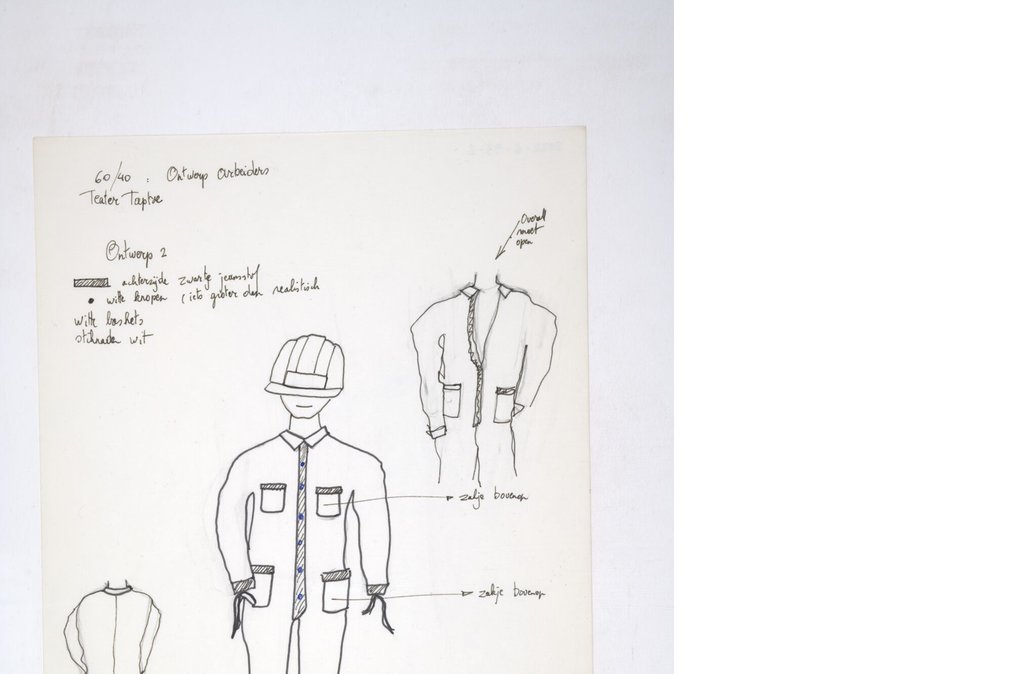 60/40 : Ontwerp arbeiders
Teater Taptoe
Overall
moet
open
Ontwerp 2
achterzijde zwarte jeansstof
witte knopen (iets groter dan realistisch
witte baskets
wit
zakje bovenop
zakje bovenop